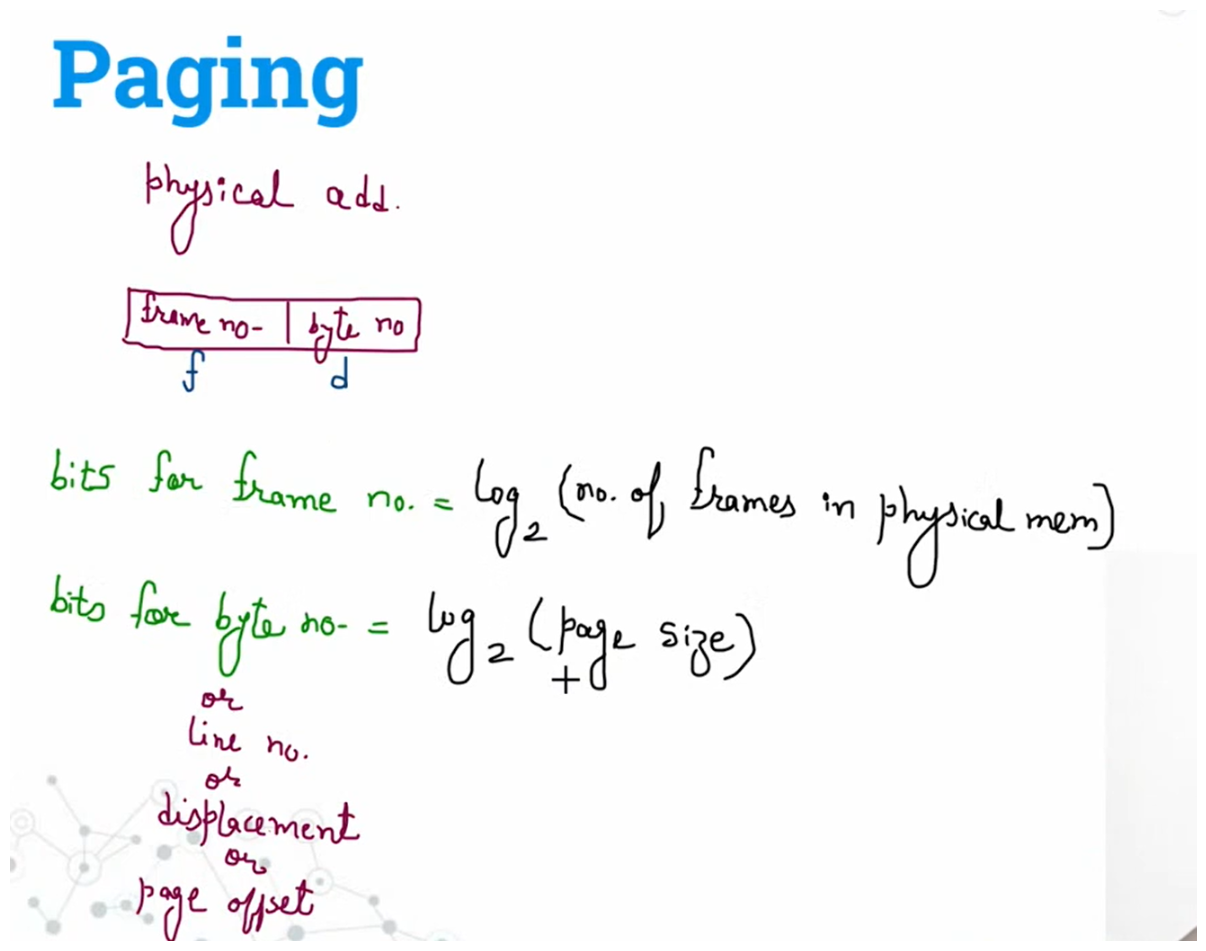 Paging
physical add.
frame no- | byte no
f d
bits for frame no. = log2 (no. of frames in physical mem)
bits for byte no- = log2 (page size)
or
line no.
or
displacement
or
page offset